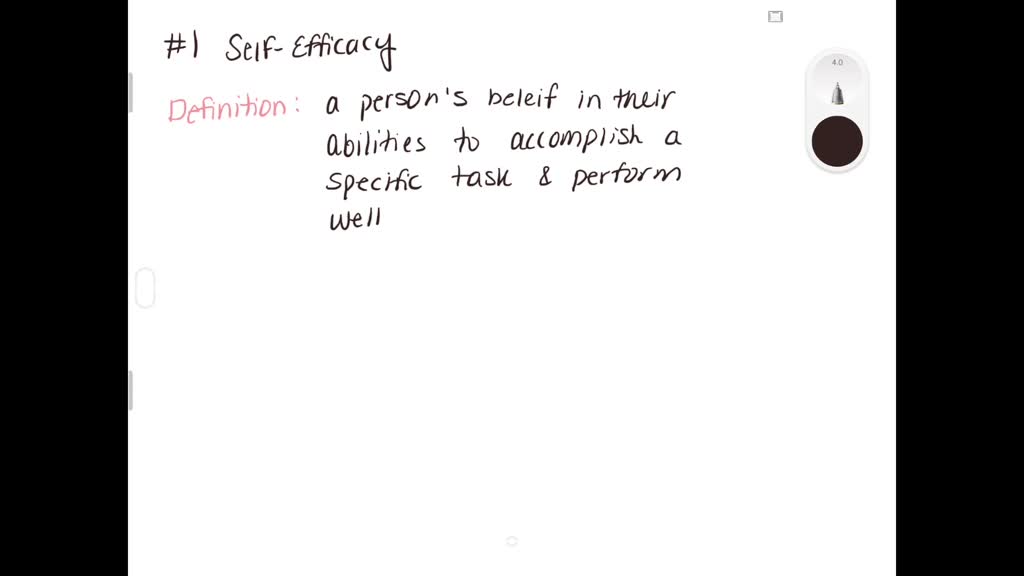 #1 Self-Efficacy
Definition: a person's beleif in their
abilities to accomplish a
specific task & perform
well
4.0